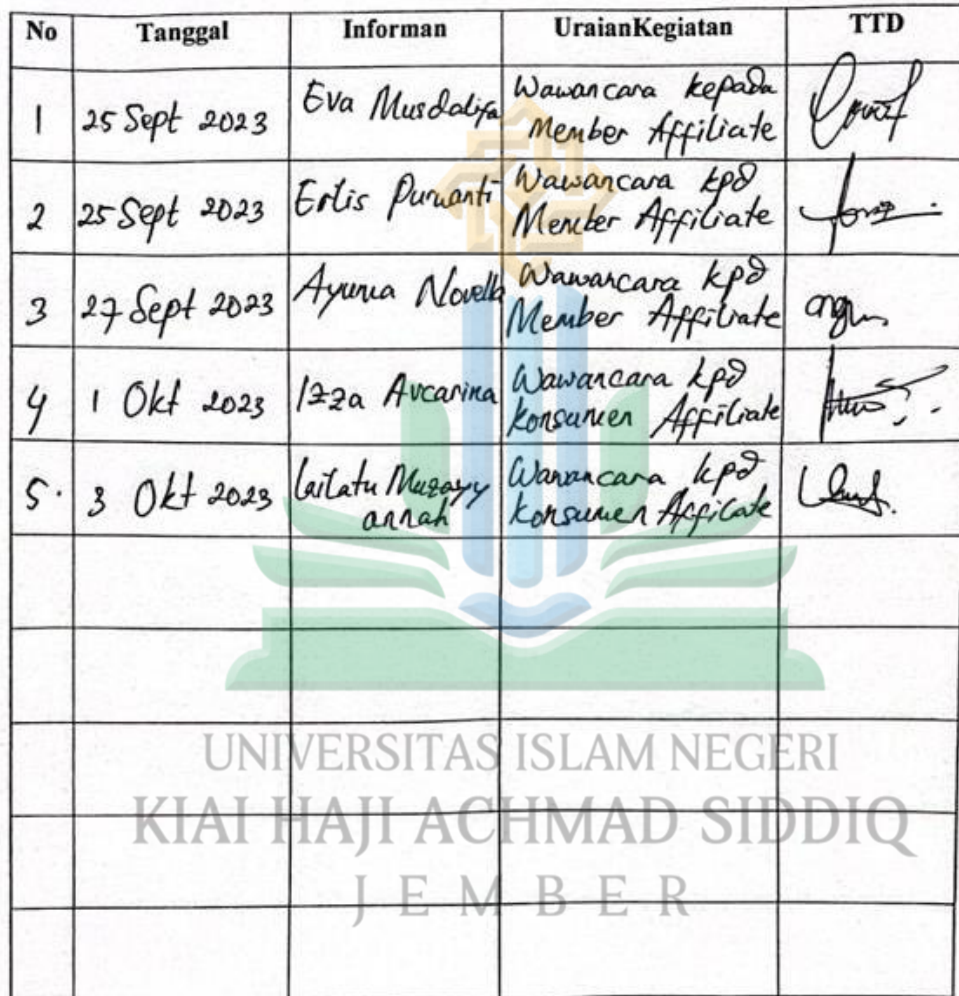 No Tanggal Informan UraianKegiatan TTD
1 25 Sept 2023 Eva Musdalifa Wawancara kepada
Member Affiliate
2 25 Sept 2023 Erlis Purwanti Wawancara kpd
Member Affiliate
3 27 Sept 2023 Ayunia Novella Wawancara kpd
Member Affiliate
4 1 Okt 2023 Izza Avcarina Wawancara kpd
Konsumen Affiliate
5. 3 Okt 2023 Lailatu Muzayy Wawancara kpd
annah Konsumen Affiliate
UNIVERSITAS ISLAM NEGERI
KIAI HAJI ACHMAD SIDDIQ
JEMBER